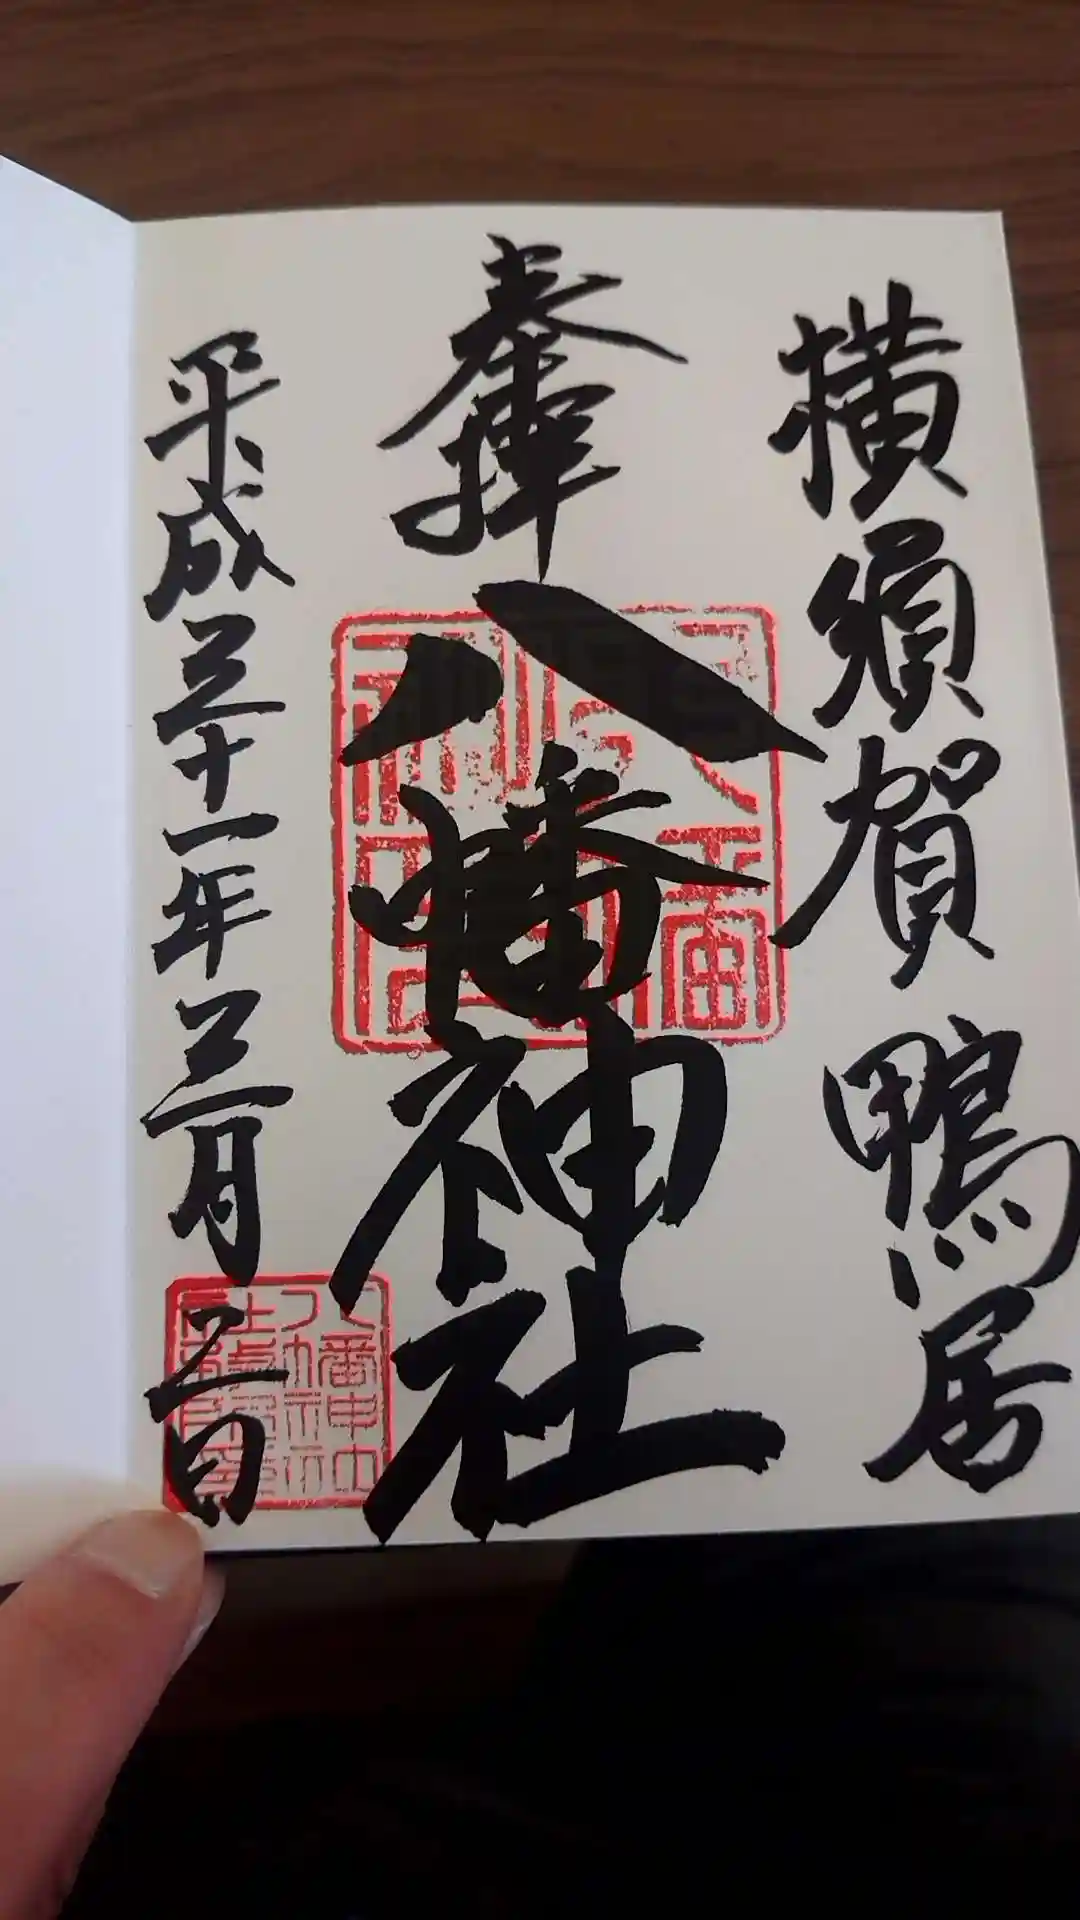 横須賀 鴨居
奉拝 八幡神社
平成三十一年三月二日